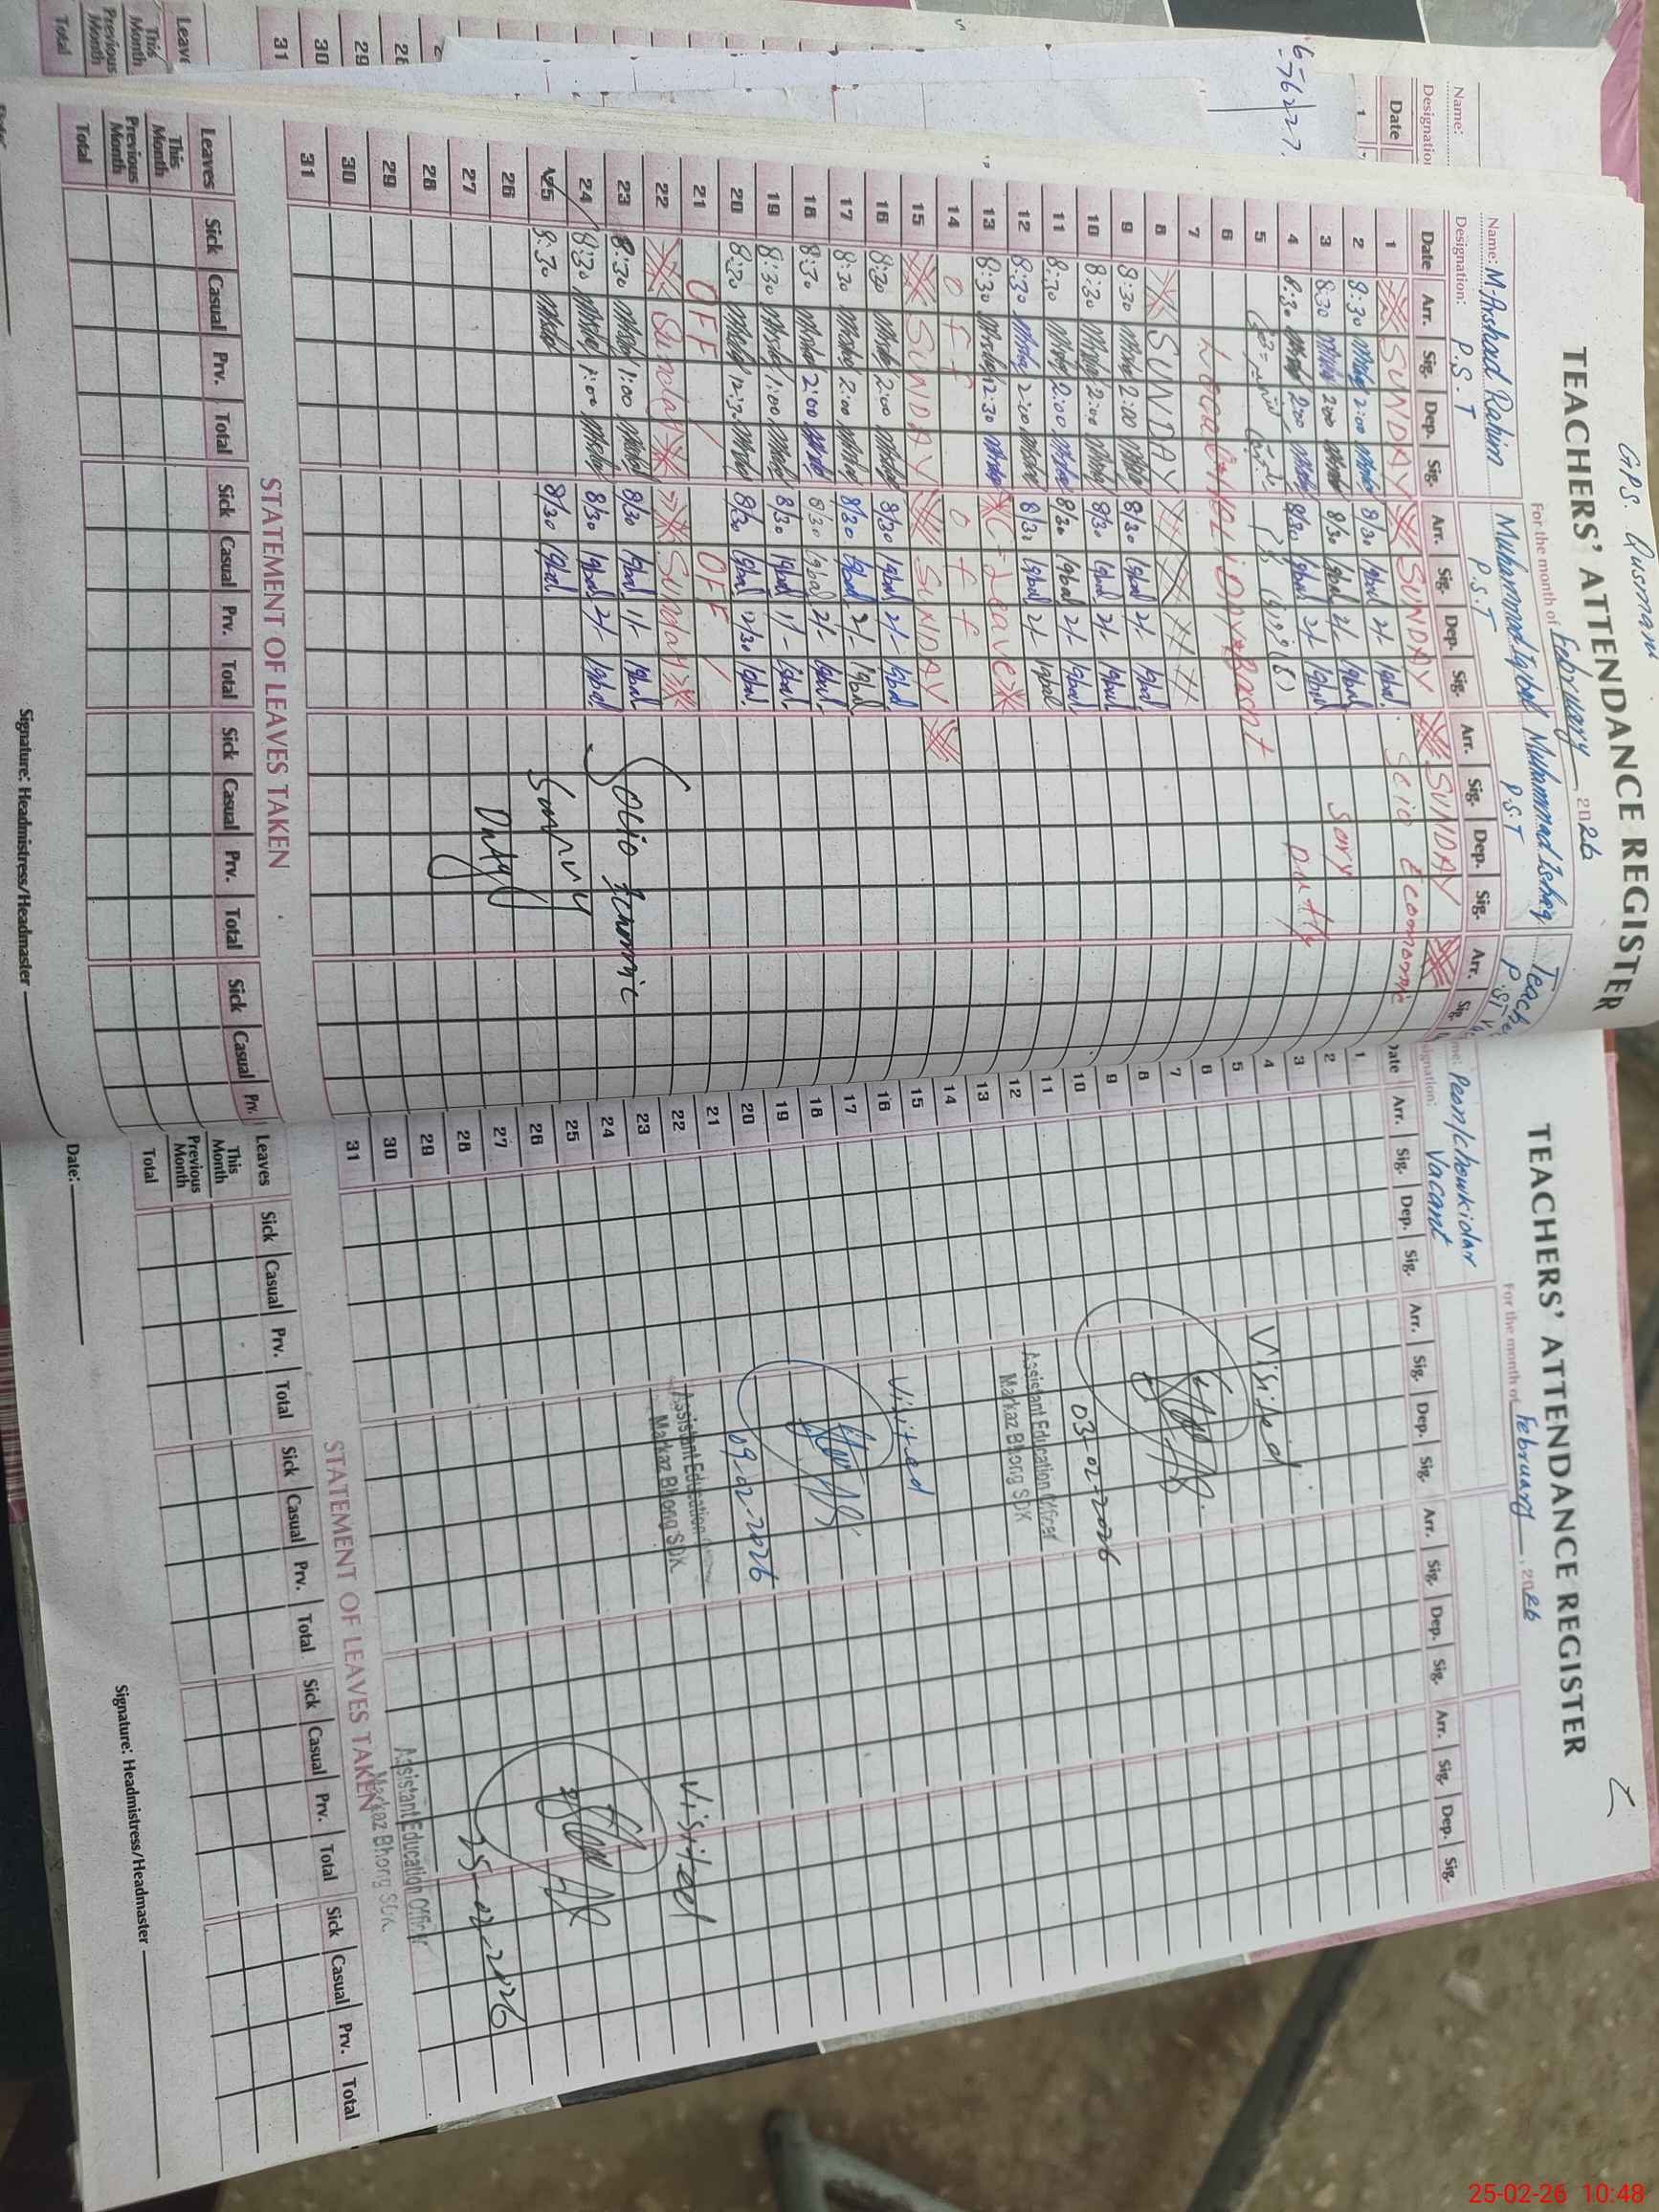 GPS. Qusmani
TEACHERS' ATTENDANCE REGISTER
For the month of February 2026
Name: M. Arshad Rahim Muhammad Iqbal Muhammad Ishaq Teach
Designation: P.S.T P.S.T P.S.T
Date Arr. Sig. Dep. Sig. Arr. Sig. Dep. Sig. Arr. Sig. Dep. Sig. Arr. Sig.
1 SUNDAY SUNDAY SUNDAY
2 8:30 2:00 8/30 Iqbal 2/- Iqbal Scio Economic
3 8:30 2:00 8/30 Iqbal 2/- Iqbal Sery
4 8:30 2:00 8/30 Iqbal 2/- Iqbal Dutty
5
6 Local HOLIDAY Basnt
7
8 SUNDAY
9 8:30 2:00 8/30 Iqbal 2/- Iqbal
10 8:30 2:00 8/30 Iqbal 2/- Iqbal
11 8:30 2:00 8/30 Iqbal 2/- Iqbal
12 8:30 2:00 8/30 Iqbal 2/- Iqbal
13 8:30 12:30 C-Leave
14 off off
15 SUNDAY SUNDAY
16 8:30 2:00 8/30 Iqbal 2/- Iqbal
17 8:30 2:00 8/30 Iqbal 2/- Iqbal
18 8:30 2:00 8/30 Iqbal 2/- Iqbal
19 8:30 1:00 8/30 Iqbal 1/- Iqbal
20 8:30 12:30 8/30 Iqbal 12/30 Iqbal
21 OFF OFF
22 Sunday Sunday
23 8:30 1:00 8/30 Iqbal 1/- Iqbal Socio Ecnomic
24 8:30 1:00 8/30 Iqbal 2/- Iqbal
25 8:30 8/30 Iqbal Survry
26 Duty
27
28
29
30
31
STATEMENT OF LEAVES TAKEN
Leaves Sick Casual Prv. Total Sick Casual Prv. Total Sick Casual Prv. Total Sick Casual Prv.
This Month
Previous Month
Total
Signature: Headmistress/Headmaster
Date:
TEACHERS' ATTENDANCE REGISTER
For the month of February, 2026
Peon/chowkidar
Vacant
Date Arr. Sig. Dep. Sig. Arr. Sig. Dep. Sig. Arr. Sig. Dep. Sig. Arr. Sig. Dep. Sig.
1
2
3
4
5
6
7
8
9
10
11
12
13
14
15
16
17
18
19
20
21
22
23
24
25
26
27
28
29
30
31
Visited
03-02-2026
Assistant Education Officer
Markaz Bhong SDK
Visited
09-02-2026
Assistant Education
Markaz Bhong SDK
Visited
25-02-2026
Assistant Education Officer
Markaz Bhong SDK
STATEMENT OF LEAVES TAKEN
Leaves Sick Casual Prv. Total Sick Casual Prv. Total Sick Casual Prv. Total Sick Casual Prv. Total
This Month
Previous Month
Total
Signature: Headmistress/Headmaster
Name:
Designation
Date
1
28
29
30
31
Leave
This Month
Previous Month
Total
25-02-26 10:48